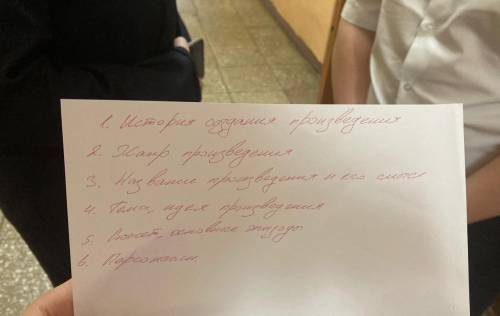 1. История создания произведения
2. Жанр произведения
3. Название произведения и его смысл
4. Тема, идея произведения
5. Сюжет, основные эпизоды
6. Персонажи